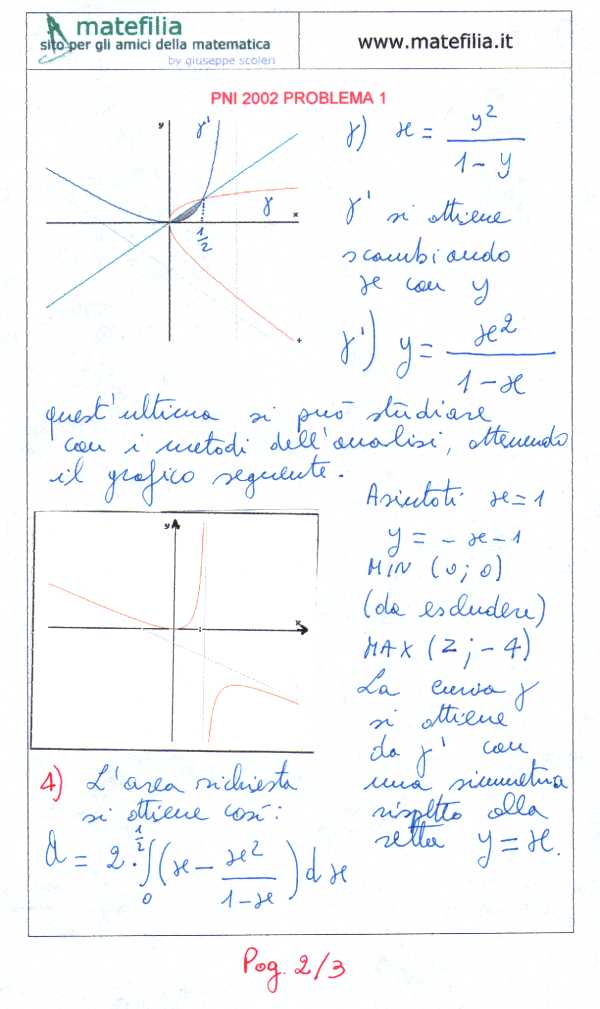 matefilia
sito per gli amici della matematica
by giuseppe scoleri
www.matefilia.it
PNI 2002 PROBLEMA 1
y
γ'
γ
x
1/2
γ) x = y²/(1 - y)
γ' si ottiene
scambiando
x con y
γ') y = x²/(1 - x)
quest'ultima si può studiare
con i metodi dell'analisi, ottenendo
il grafico seguente.
y
x
Asintoti x = 1
y = - x - 1
MIN (0; 0)
(da escludere)
MAX (2; -4)
La curva γ
si ottiene
da γ' con
una simmetria
rispetto alla
retta y = x.
4) L'area richiesta
si ottiene così:
A = 2·∫₀^{1/2} (x - x²/(1 - x)) dx
Pag. 2/3